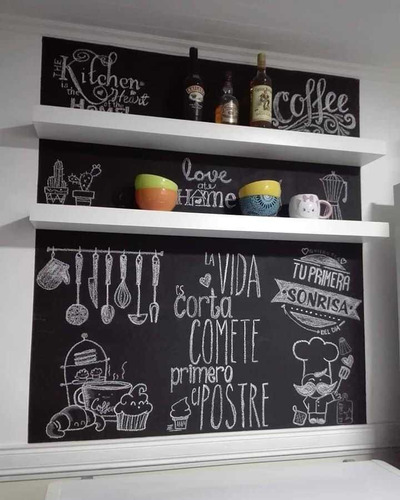 THE
Kitchen
is the Heart
of the
HOME!
coffee
love
at
HOME
LA VIDA
ES corta
COMETE
primero
el POSTRE
TU PRIMERA
SONRISA
DEL DIA
Coffee